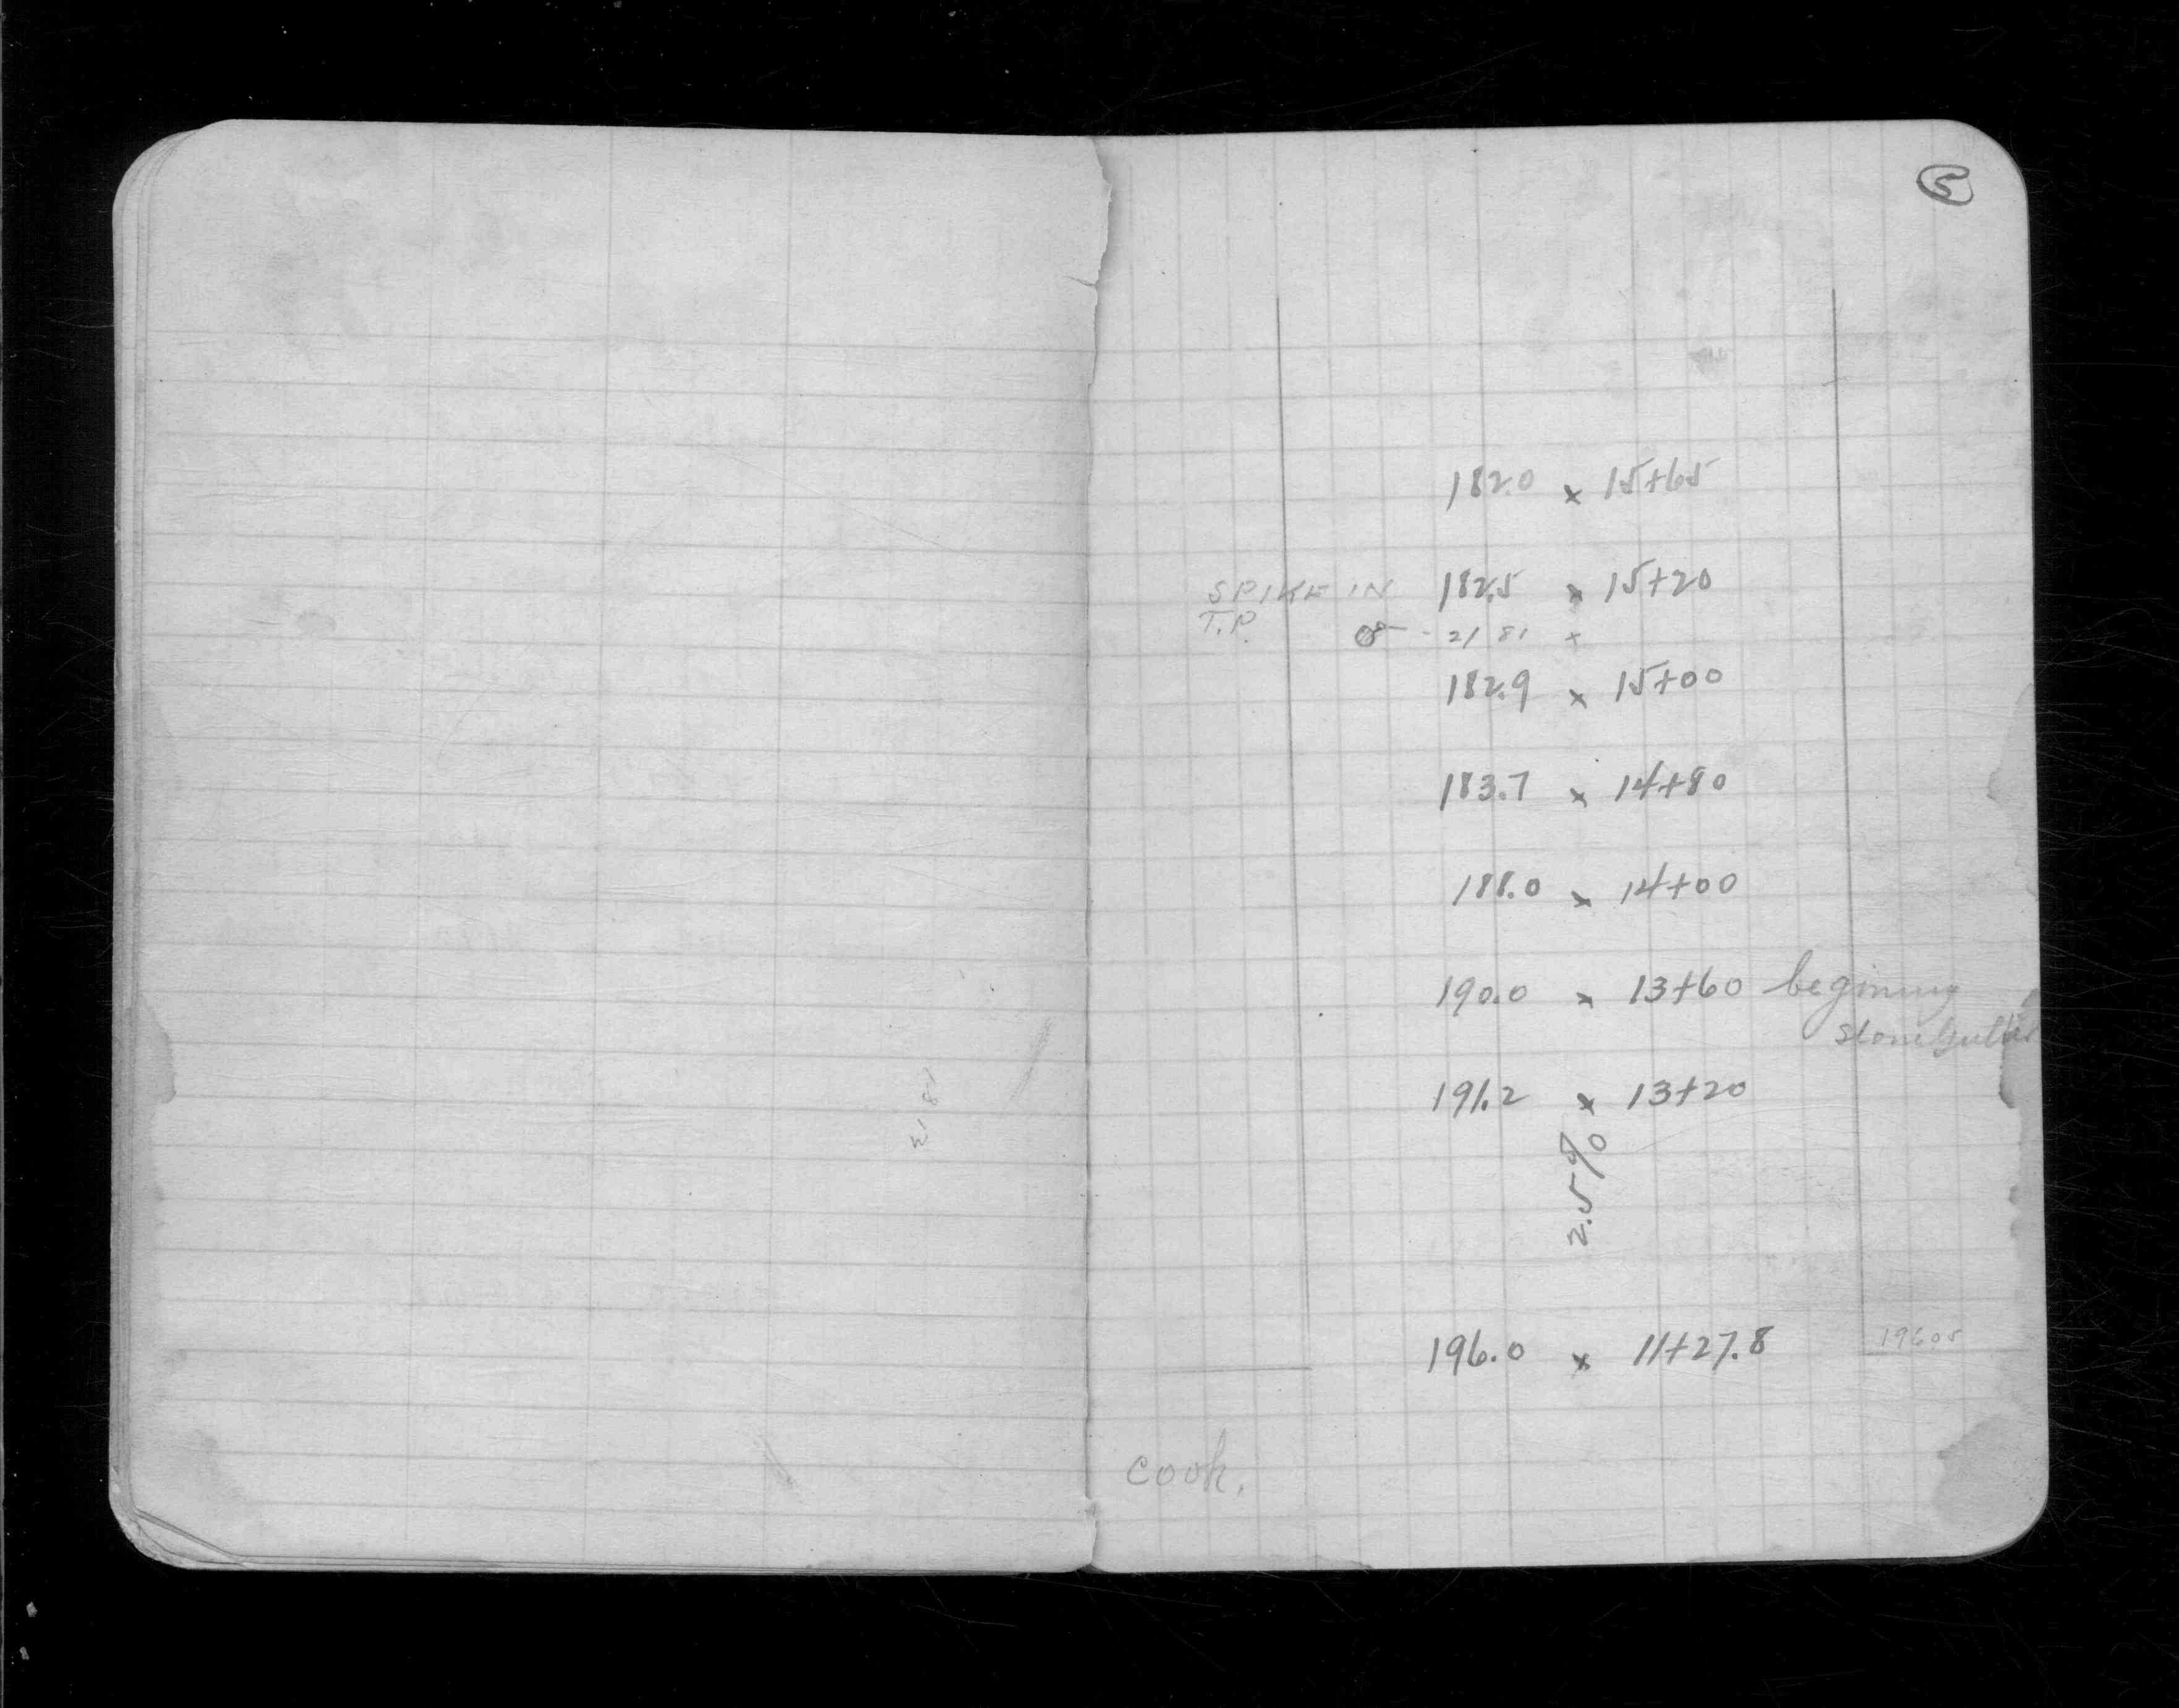 5
182.0 x 15+65
SPIKE IN 182.5 x 15+20
T.P. 21 81 x
182.9 x 15+00
183.7 x 14+80
188.0 x 14+00
190.0 x 13+60 begining
stone Gutter
191.2 x 13+20
2.5%
196.0 x 11+27.8 196.05
Cook.